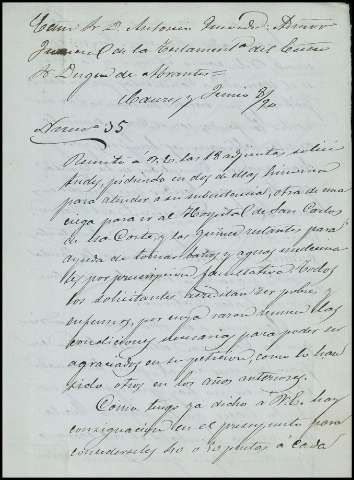 Excmo Sr D. Antonio Admor
Judicial de la Testamentaria del Excmo
Sr Duque de Abrantes =
Junio 8/90
Num.º 35
Remito á V.E. las 18 adjuntas solici-
tudes, pidiendo en dos de ellas limosna
para atender á su subsistencia, otra de una
ciega para ir al Hospital de San Carlos
de esa Corte, y las quince restantes para
ayuda de tomar baños y aguas medicina-
les por prescripcion facultativa. Todos
los solicitantes acreditan ser pobres y
enfermos, por cuya razon reunen las
condiciones necesarias para poder ser
agraciados en su peticion, como lo han
sido otros en los años anteriores.
Como tengo ya dicho á V.E. hay
consignacion en el presupuesto para
concederles 40 o 50 pesetas á cada